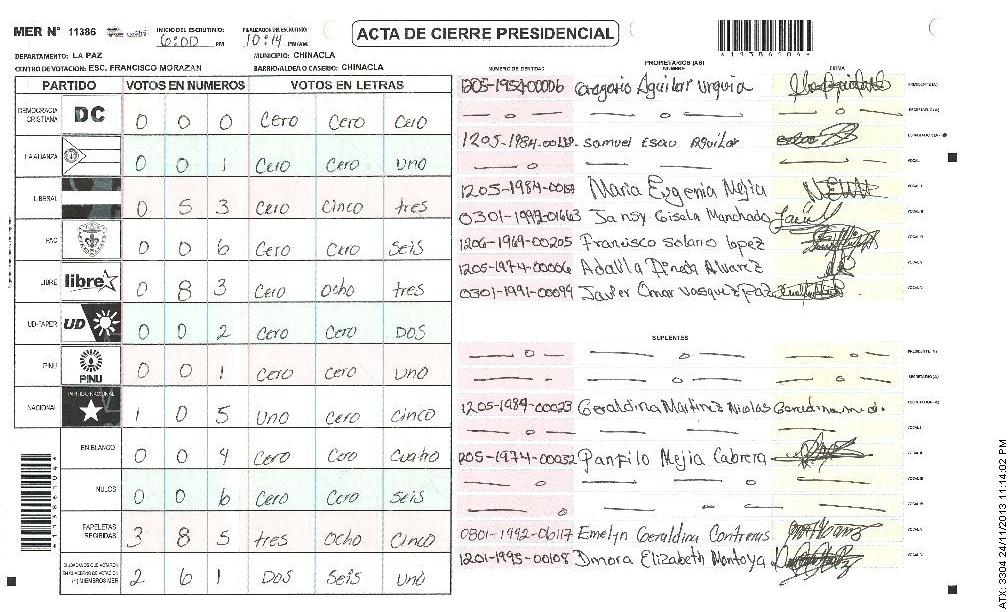 MER N° 11386
INICIO DEL ESCRUTINIO: 6:00 PM
FINALIZACION DEL ESCRUTINIO: 10:14 PM/AM
ACTA DE CIERRE PRESIDENCIAL
DEPARTAMENTO: LA PAZ
MUNICIPIO: CHINACLA
CENTRO DE VOTACION: ESC. FRANCISCO MORAZAN
BARRIO/ALDEA O CASERIO: CHINACLA
PARTIDO VOTOS EN NUMEROS VOTOS EN LETRAS
DEMOCRACIA CRISTIANA DC 0 0 0 Cero Cero Cero
LA ALIANZA 0 0 1 Cero Cero uno
LIBERAL 0 5 3 Cero Cinco tres
PAC 0 0 6 Cero Cero Seis
LIBRE libre 0 8 3 Cero Ocho tres
UD-FAPER UD 0 0 2 Cero Cero DOS
PINU PINU 0 0 1 Cero Cero uno
NACIONAL PARTIDO NACIONAL 1 0 5 uno Cero Cinco
EN BLANCO 0 0 4 Cero Cero Cuatro
NULOS 0 0 6 Cero Cero Seis
PAPELETAS RECIBIDAS 3 8 5 tres Ocho Cinco
CIUDADANOS QUE VOTARON 2 6 1 DOS Seis uno
(*) MIEMBROS MER
PROPIETARIOS (AS)
NUMERO DE IDENTIDAD NOMBRE FIRMA
Gregorio Aguilar Urquia PRESIDENTE (A)
SECRETARIO (A)
Samuel Esau Aguilar
Maria Eugenia Mejia
0301-1992-01663 Jansy Gisela Manchado
1206-1969-00205 Francisco Solano lopez
1205-1974-00006 Adalila Pineda Alvarez
0301-1991-00094 Javier Omar Vasquez Paz
SUPLENTES
PRESIDENTE (A)
SECRETARIO (A)
1205-1989-00023 Geraldina Martinez Nicolas
205-1974-00032 Panfilo Mejia Cabrera
0801-1992-06117 Emelyn Geraldina Contreras
1201-1995-00108 Dinora Elizabeth Montoya
ATX: 3304 24/11/2013 11:14:02 PM